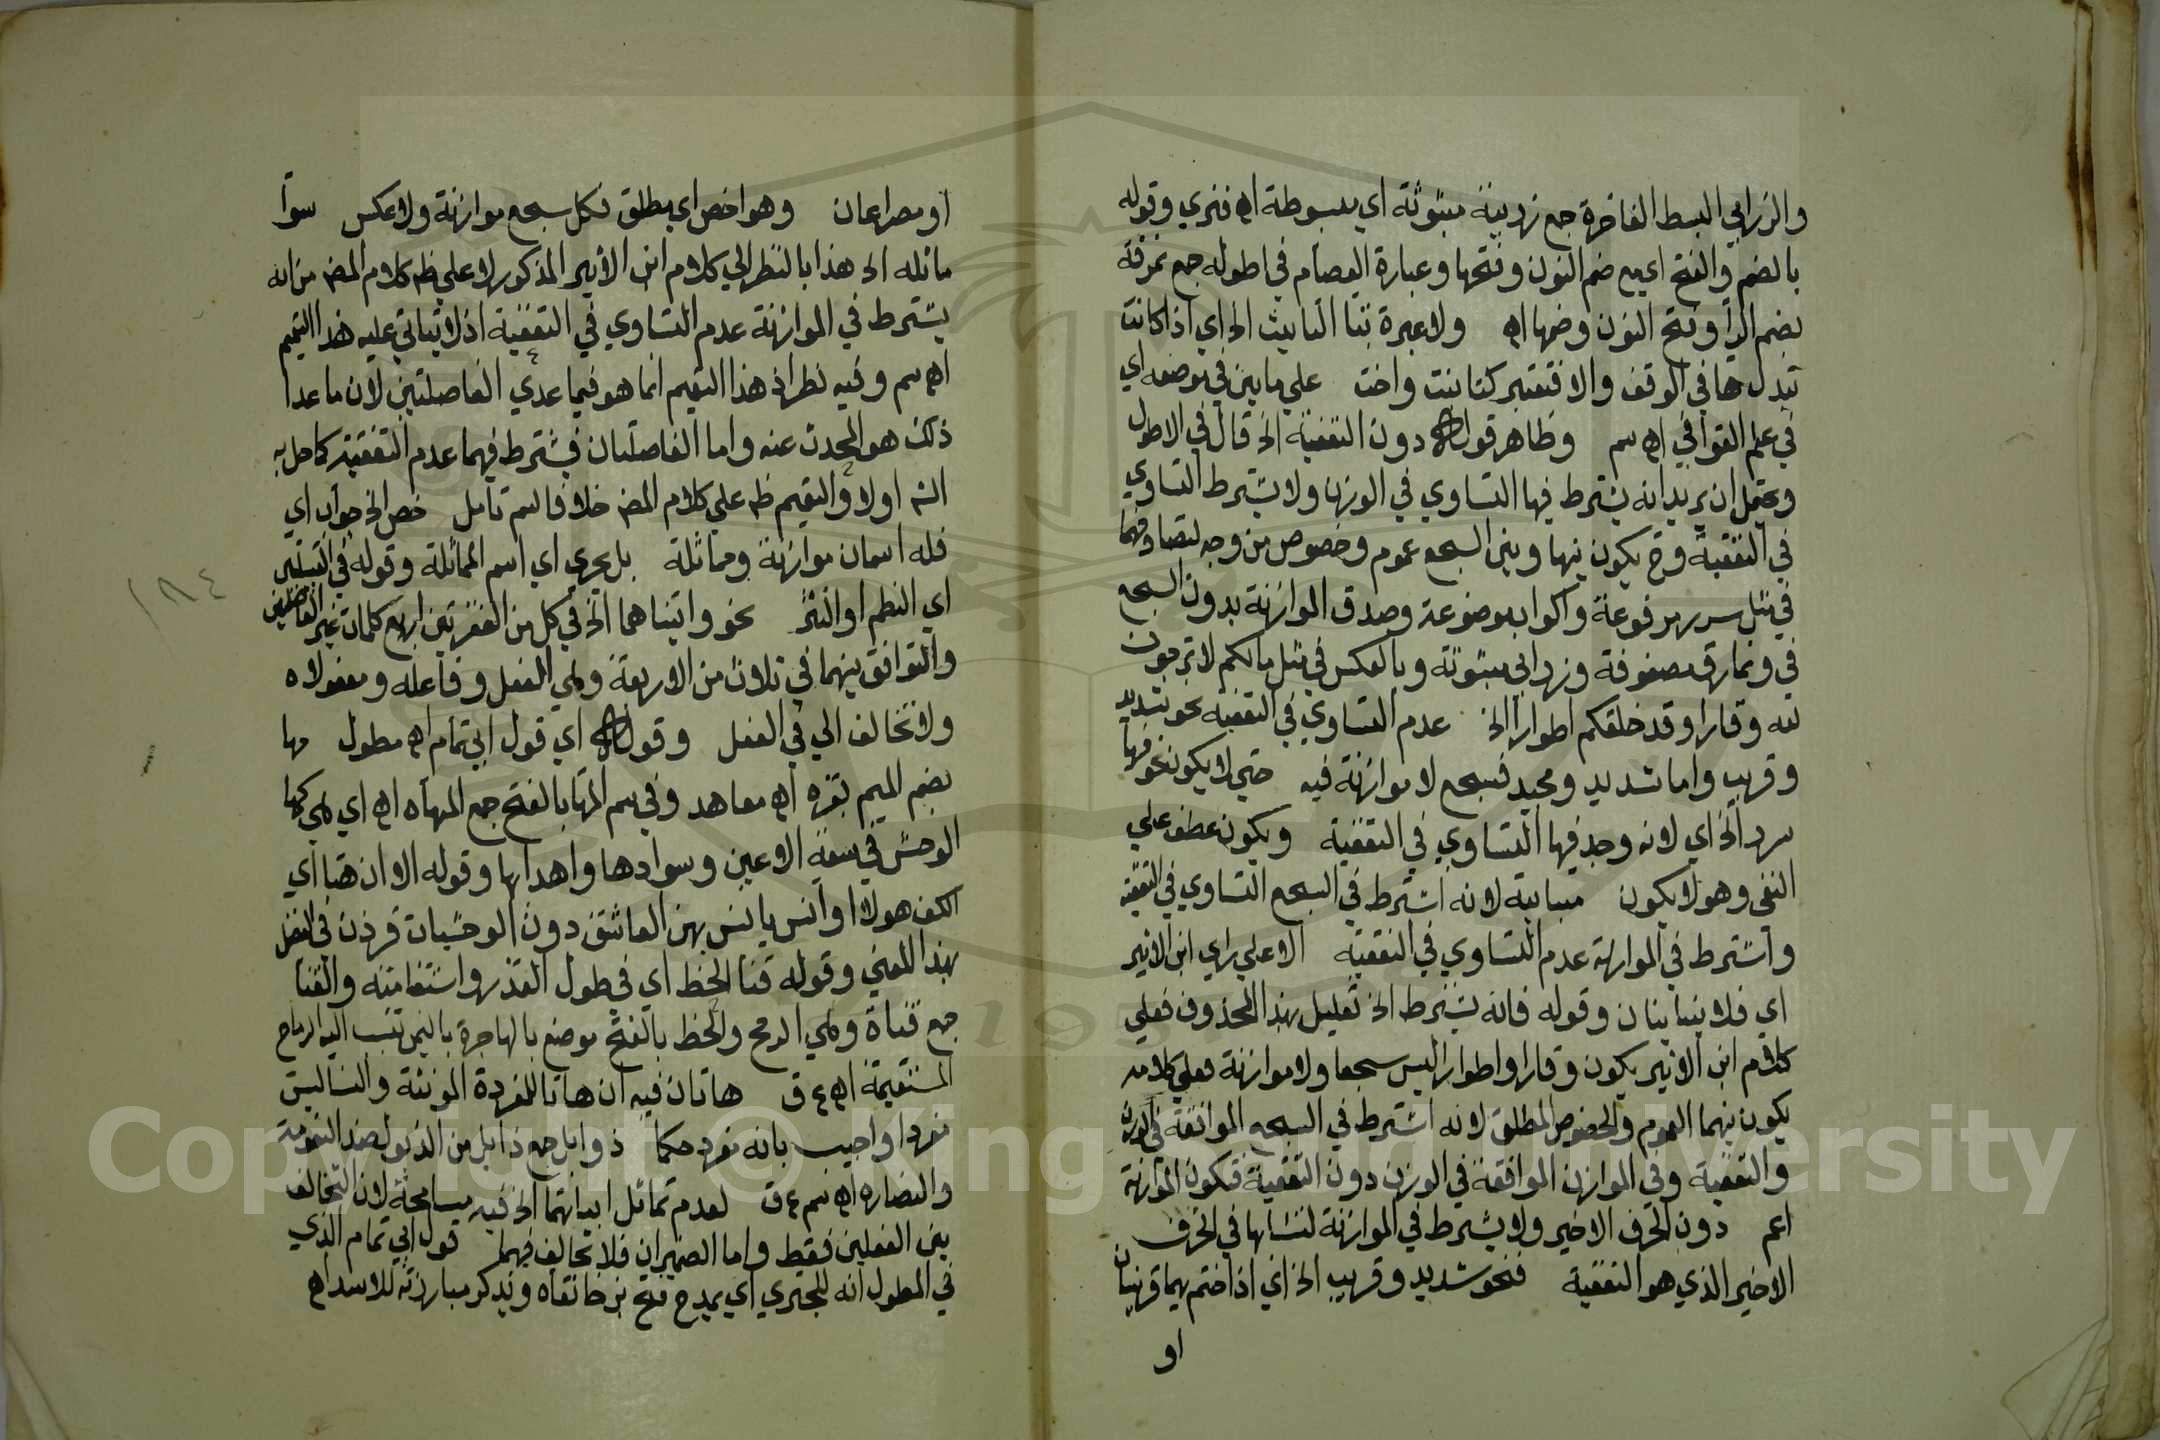 والزرابي البسط الفاخرة جمع زربية مبثوثة اي مبسوطة اه فنري وقوله
بالضم والفتح اي مع ضم النون وفتحها وعبارة العصام في اطوله جمع نمرقة
بضم الراء وفتح النون وضمها اه ولا عبرة بتا التانيث الخ اي اذا كانت
تبدل ها في الوقف والا فتعتبر كتا بنت واخت علي ما بين في موضعه اي
في علم القوافي اه سم وظاهر قوله دون التقفية الخ قال في الاطول
ويحتمل ان يريد انه يشترط فيها التساوي في الوزن ولا يشترط التساوي
في التقفية وح يكون بينها وبين السجع عموم وخصوص من وجه لتصادقهما
في مثل سرر مرفوعة واكواب موضوعة وصدق الموازنة بدون السجع
في ونمارق مصفوفة وزرابي مبثوثة وبالعكس في مثل مالكم لا ترجون
لله وقارا وقد خلقكم اطوارا الخ عدم التساوي في التقفية نحو شديد
وقريب واما شديد ومجيد فسجع لا موازنة فيه حتي لا يكون نحو فيها
سرر الخ اي لانه وجد فيها التساوي في التقفية ويكون عطف علي
النفي وهو لا يكون مباينة لانه اشترط في السجع التساوي في التقفية
واشترط في الموازنة عدم التساوي في التقفية الا علي راي ابن الاثير
اي فلا يتباينان وقوله فانه يشترط الخ تعليل لهذا المحذوف فعلي
كلام ابن الاثير يكون وقارا واطوارا ليس سجعا ولا موازنة فعلي كلامه
يكون بينهما العموم والخصوص المطلق لانه اشترط في السجع الموافقة في الوزن
والتقفية وفي الموازن الموافقة في الوزن دون التقفية فكون الموازنة
اعم دون الحرف الاخير ولا يشترط في الموازنة تشابها في الحرف
الاخير الذي هو التقفية فنحو شديد وقريب الخ اي اذا ختم بهما قرينتان
او
او مصراعان وهو اخص اي مطلق فكل سجع موازنة ولا عكس سوآ
ماثله الخ هذا بالنظر الي كلام ابن الاثير المذكور لا علي ظه كلام المصـ من انه
يشترط في الموازنة عدم التساوي في التقفية اذ لا يتاتي عليه هذا التعميم
اه سم وفيه نظر اذ هذا التعميم انما هو فيما عدي الفاصلتين لان ما عدا
ذلك هو المحدث عنه واما الفاصلتان فيشترط فيهما عدم التقفية كما حل به
الشـ اولا والتعميم ظه علي كلام المصـ خلافا لسم تامل خص الخ جواب اي
فله اسمان موازنة ومماثلة بل يجري اي اسم المماثلة وقوله في القبيلتين
اي النظم او النثر نحو واتيناهما الخ في كل من الفقرتين اربع كلمات غير الفاصلتين
والتوافق بينهما في ثلاث من الاربعة وهي الفعل وفاعله ومفعولاه
ولا تخالف الي في الفعل وقوله اي قول ابي تمام اه مطول مها
بضم الميم بقره اه معاهد وفي سم المها بالفتح جمع المهاه اه اي هي كمها
الوحش في سعة الاعين وسوادها واهدابها وقوله الا ان هتا اي
لكن هولا اوانس يانس بهن العاشق دون الوحشيات فزدن في الفضل
بهذا المعني وقوله قنا الخط اي في طول القدر واستقامته والقنا
جمع قناة وهي الرمح والخط بالفتح موضع باليمامة تنسب اليه الرماح
المستقيمة اه ع ق هاتان فيه ان هاتا للمفردة المونثة والنسا ليس
مفردا واجيب بانه مفرد حكما ذوابل جمع ذابل من الذبول ضد النعومة
والنضاره اه سم ع ق لعدم تماثل ابياتهما الخ فيه مسامحة لان التخالف
بين الفعلين فقط واما الضميران فلا تخالف فيهما قول ابي تمام الذي
في المطول انه للبحتري اي يمدح فتح بن خاقان ويذكر مبارزته للاسد اه
١٨٤
Copyright © King Saud University